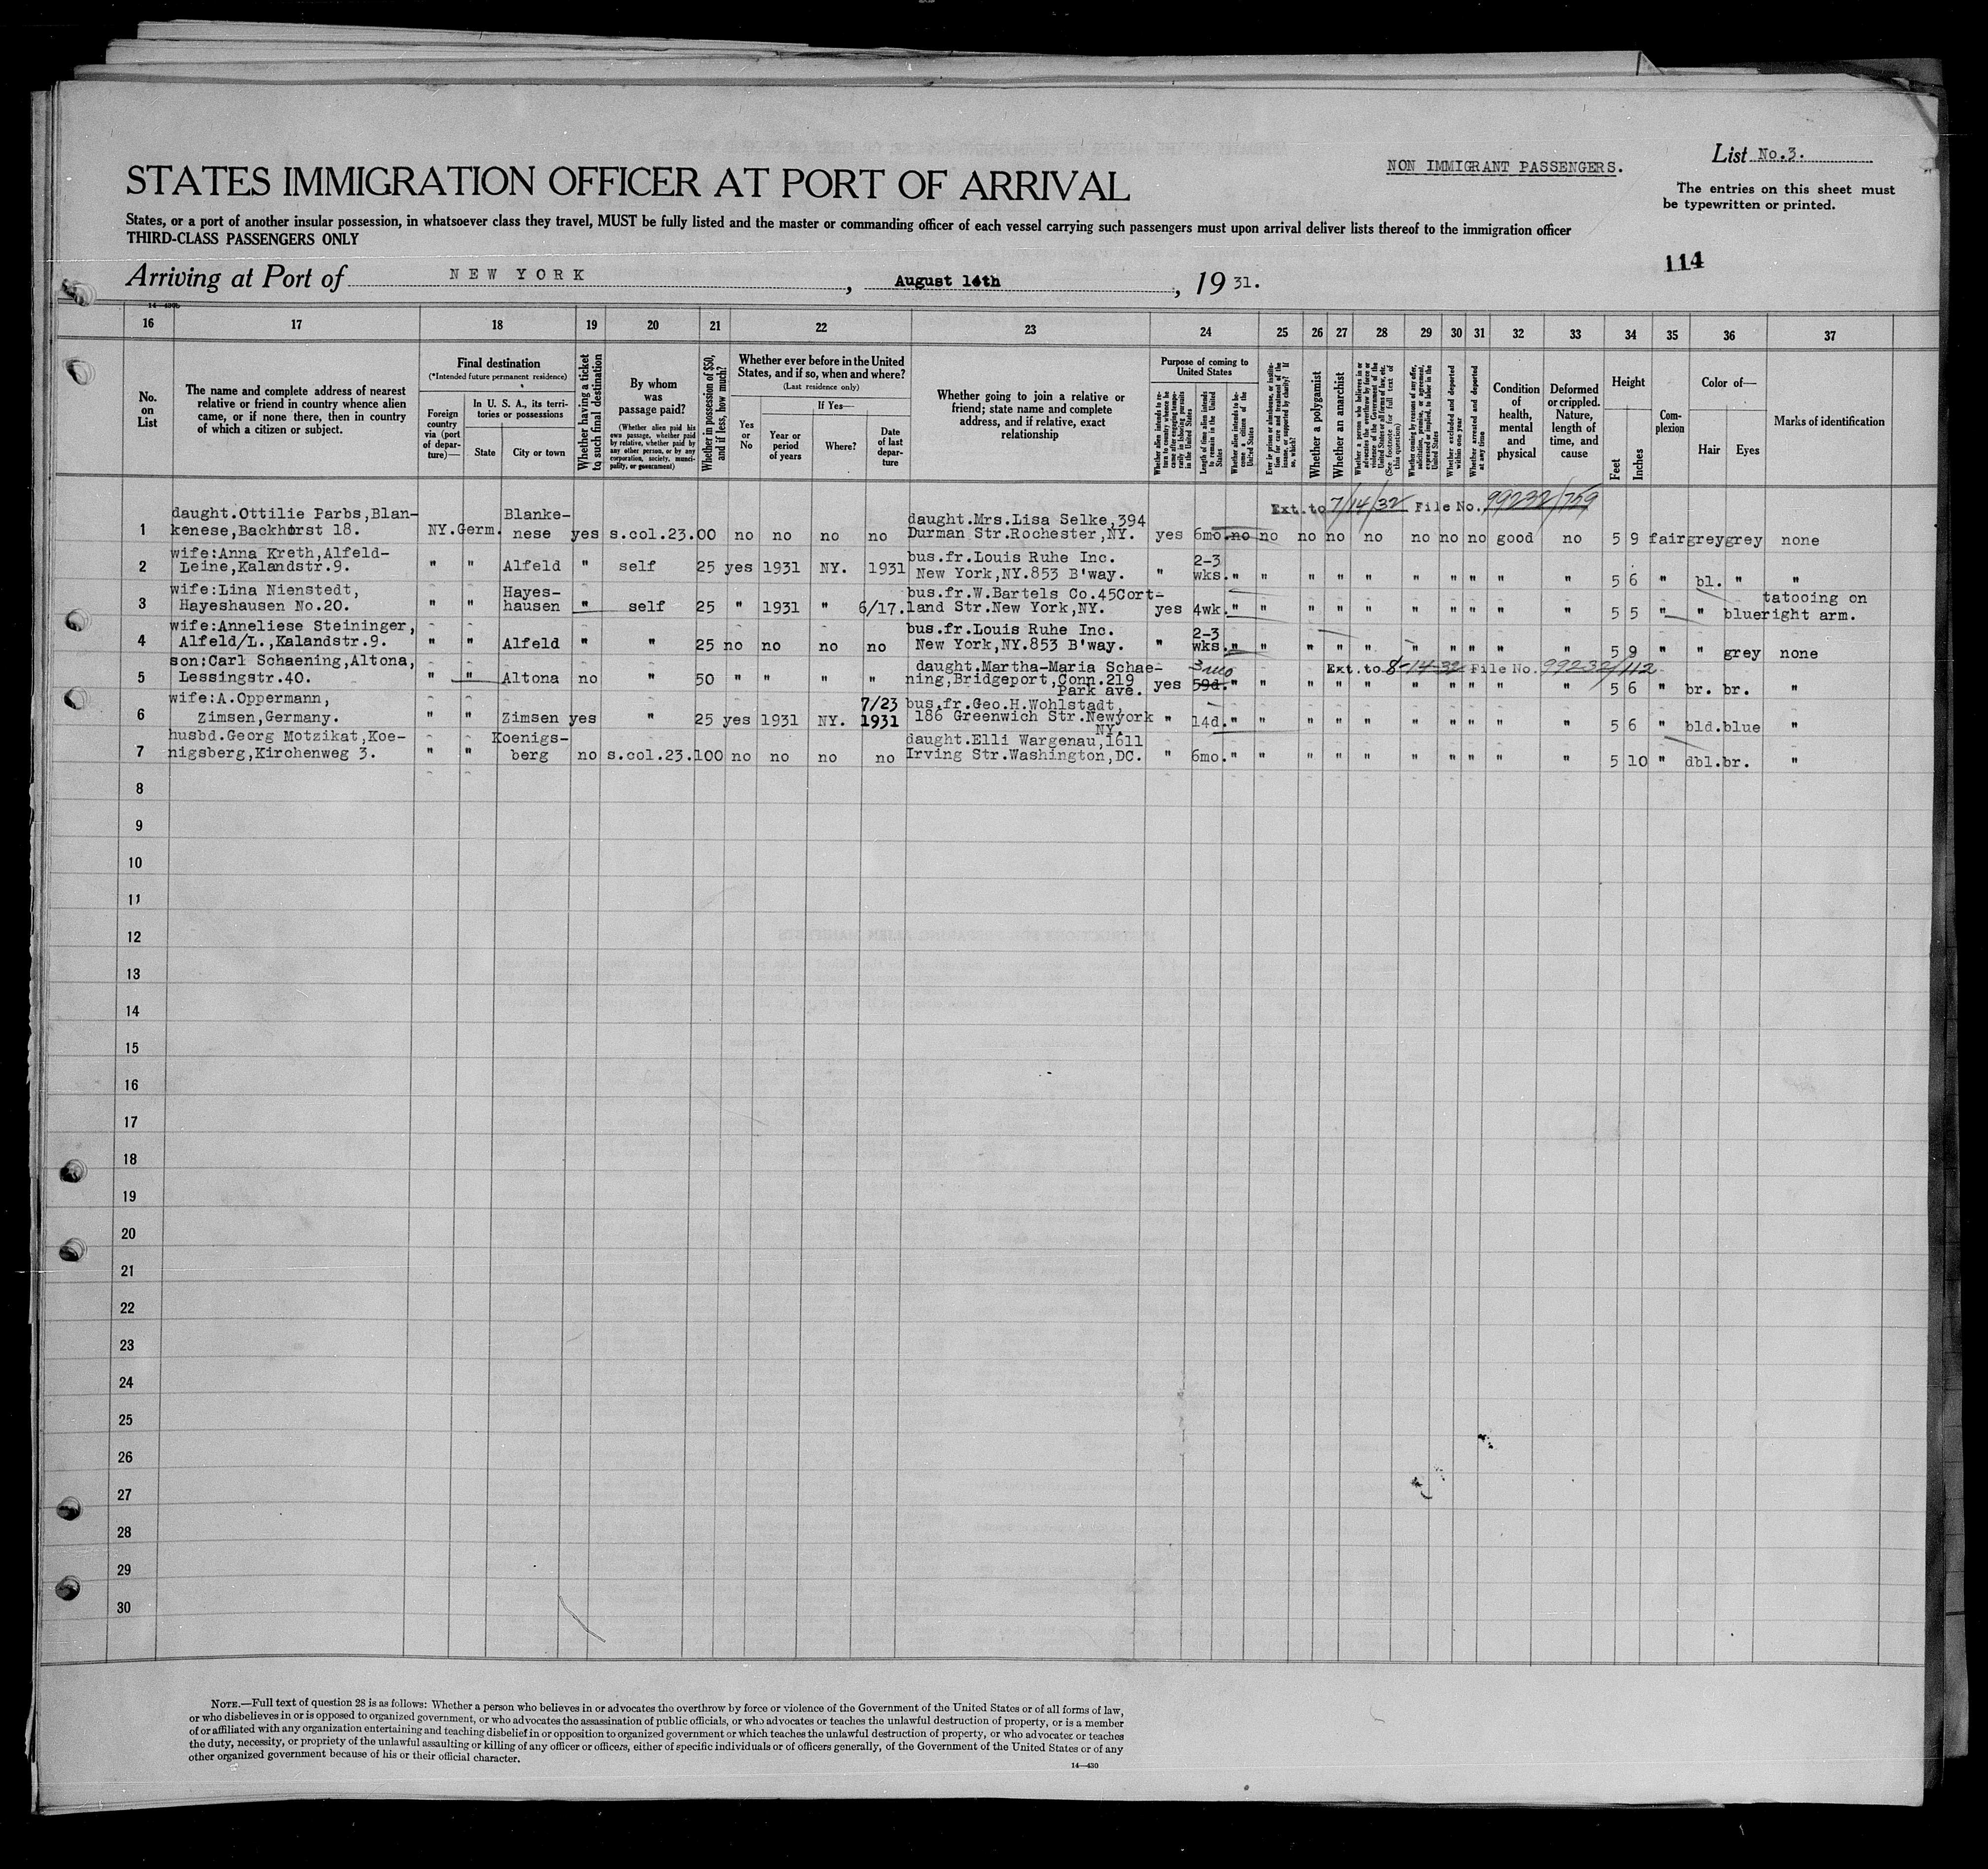 List No.3.
NON IMMIGRANT PASSENGERS.
STATES IMMIGRATION OFFICER AT PORT OF ARRIVAL
The entries on this sheet must
be typewritten or printed.
States, or a port of another insular possession, in whatsoever class they travel, MUST be fully listed and the master or commanding officer of each vessel carrying such passengers must upon arrival deliver lists thereof to the immigration officer
THIRD-CLASS PASSENGERS ONLY
114
Arriving at Port of NEW YORK, August 14th, 1931.
16 17 18 19 20 21 22 23 24 25 26 27 28 29 30 31 32 33 34 35 36 37
No.
on
List
The name and complete address of nearest
relative or friend in country whence alien
came, or if none there, then in country
of which a citizen or subject.
Final destination
(*Intended future permanent residence)
Foreign
country
via (port
of depar-
ture)—
In U. S. A., its terri-
tories or possessions
State
City or town
Whether having a ticket
to such final destination
By whom
was
passage paid?
(Whether alien paid his
own passage, whether paid
by relative, whether paid by
any other person, or by any
corporation, society, munici-
pality, or government)
Whether in possession of $50,
and if less, how much?
Whether ever before in the United
States, and if so, when and where?
(Last residence only)
If Yes—
Yes
or
No
Year or
period
of years
Where?
Date
of last
depar-
ture
Whether going to join a relative or
friend; state name and complete
address, and if relative, exact
relationship
Purpose of coming to
United States
Whether alien intends to re-
turn to country whence he
came after engaging tempo-
rarily in laboring pursuits
in the United States
Length of time alien intends
to remain in the United
States
Whether alien intends to be-
come a citizen of the
United States
Ever in prison or almshouse, or institu-
tion for care and treatment of the
insane, or supported by charity? If
so, which?
Whether a polygamist
Whether an anarchist
Whether a person who believes in or
advocates the overthrow by force or
violence of the Government of the
United States or all forms of law, etc.
(See footnote for full text of
this question)
Whether coming by reasons of any offer,
solicitation, promise, or agreement,
expressed or implied, to labor in the
United States
Whether excluded and deported
within one year
Whether arrested and deported
at any time
Condition
of
health,
mental
and
physical
Deformed
or crippled.
Nature,
length of
time, and
cause
Height
Feet
Inches
Com-
plexion
Color of—
Hair
Eyes
Marks of identification
Ext. to 7/14/32 File No. 99232/759
daught.Ottilie Parbs,Blan- Blanke- daught.Mrs.Lisa Selke,394
1 kenese,Backhorst 18. NY. Germ. nese yes s.col.23. 00 no no no no Durman Str.Rochester,NY. yes 6mo. no no no no no no no no good no 5 9 fair grey grey none
wife:Anna Kreth,Alfeld- bus.fr.Louis Ruhe Inc. 2-3
2 Leine,Kalandstr.9. " " Alfeld " self 25 yes 1931 NY. 1931 New York,NY.853 B'way. " wks. " " " " " " " " " " 5 6 " bl. " "
wife:Lina Nienstedt, Hayes- bus.fr.W.Bartels Co.45Cort- tatooing on
3 Hayeshausen No.20. " " hausen " self 25 " 1931 " 6/17. land Str.New York,NY. yes 4wk. " " " " " " " " " " 5 5 " " blue right arm.
wife:Anneliese Steininger, bus.fr.Louis Ruhe Inc. 2-3
4 Alfeld/L.,Kalandstr.9. " " Alfeld " " 25 no no no no New York,NY.853 B'way. " wks. " " " " " " " " " " 5 9 " " grey none
son:Carl Schaening,Altona, daught.Martha-Maria Schae- 3 mo Ext. to 8-14-32 File No. 99232/112
5 Lessingstr.40. " " Altona no " 50 " " " " ning,Bridgeport,Conn.219 yes 59d. " " " " " " " " " " 5 6 " br. br. "
Park ave.
wife:A.Oppermann, 7/23 bus.fr.Geo.H.Wohlstadt,
6 Zimsen,Germany. " " Zimsen yes " 25 yes 1931 NY. 1931 186 Greenwich Str.Newyork " 14d. " " " " " " " " " " 5 6 " bld. blue "
NY.
husbd.Georg Motzikat,Koe- Koenigs- daught.Elli Wargenau,1611
7 nigsberg,Kirchenweg 3. " " berg no s.col.23. 100 no no no no Irving Str.Washington,DC. " 6mo. " " " " " " " " " " 5 10 " dbl. br. "
8
9
10
11
12
13
14
15
16
17
18
19
20
21
22
23
24
25
26
27
28
29
30
NOTE.—Full text of question 28 is as follows: Whether a person who believes in or advocates the overthrow by force or violence of the Government of the United States or of all forms of law,
or who disbelieves in or is opposed to organized government, or who advocates the assassination of public officials, or who advocates or teaches the unlawful destruction of property, or is a member
of or affiliated with any organization entertaining and teaching disbelief in or opposition to organized government or which teaches the unlawful destruction of property, or who advocates or teaches
the duty, necessity, or propriety of the unlawful assaulting or killing of any officer or officers, either of specific individuals or of officers generally, of the Government of the United States or of any
other organized government because of his or their official character.
14—430